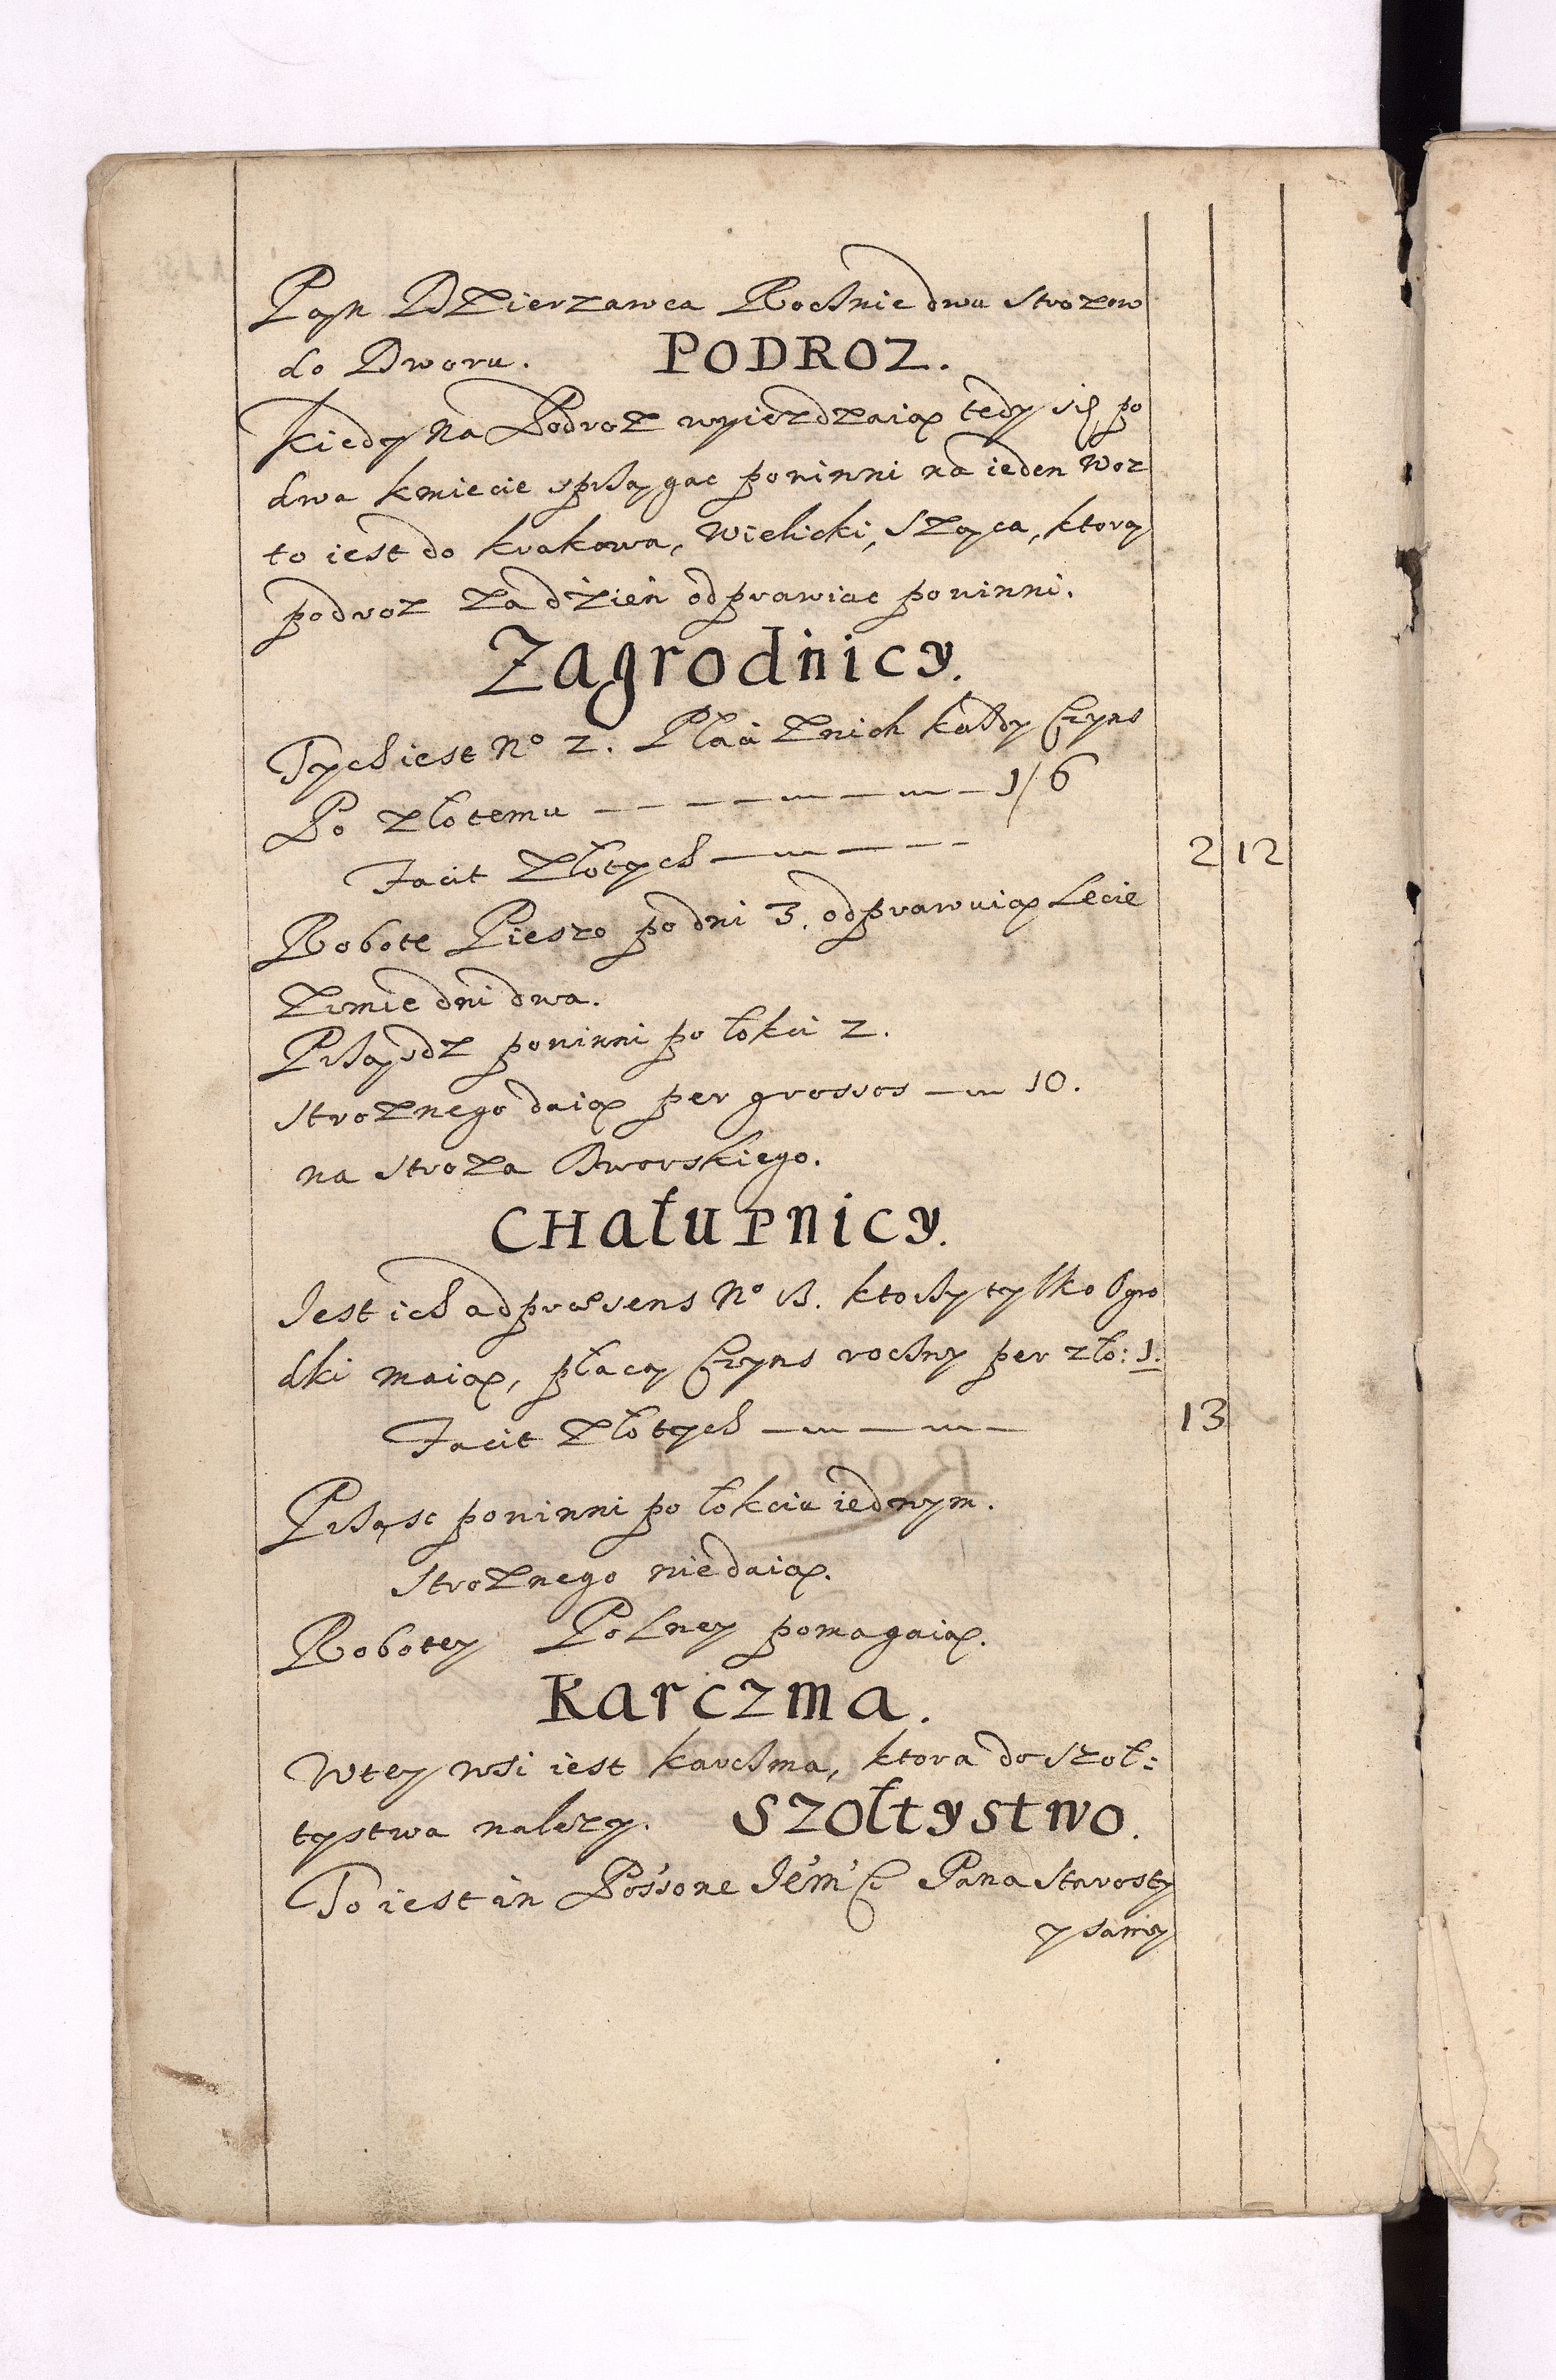 Pan Dzierzawca Rocznie dwu strozow
do Dworu. PODROZ.
Kiedy na Podroz wyiezdzaią tedy się po
dwa kmiecie sprzągac powinni na ieden Woz
to iest do krakowa, Wielicki, Sząca, ktorą
podroz za dzień odprawiac powinni.
Zagrodnicy.
Tych iest No 2. Płaci znich kazdy Czyns
Po złotemu 1/6
Facit złotych 2 12
Robote Pieszo po dni 3. odprawuią Lecie
Zimie dni dwa.
Prządz powinni po łokci 2.
stroznego daią per grossos 10.
na stroza Dworskiego.
CHałuPnicy.
Jest ich ad præsens No 13. ktorzy tylko Ogro
dki maią, płacą Czyns roczny per zło: 1.
Facit złotych 13
Prząsc powinni po łokciu iednym.
stroznego niedaią.
Robotey Polney pomagaią.
Karczma.
Wtey wsi iest karczma, ktora do szoł:
tystwa nalezy. Szołtystwo.
To iest in Possone Jem Pana Starosty
y samey